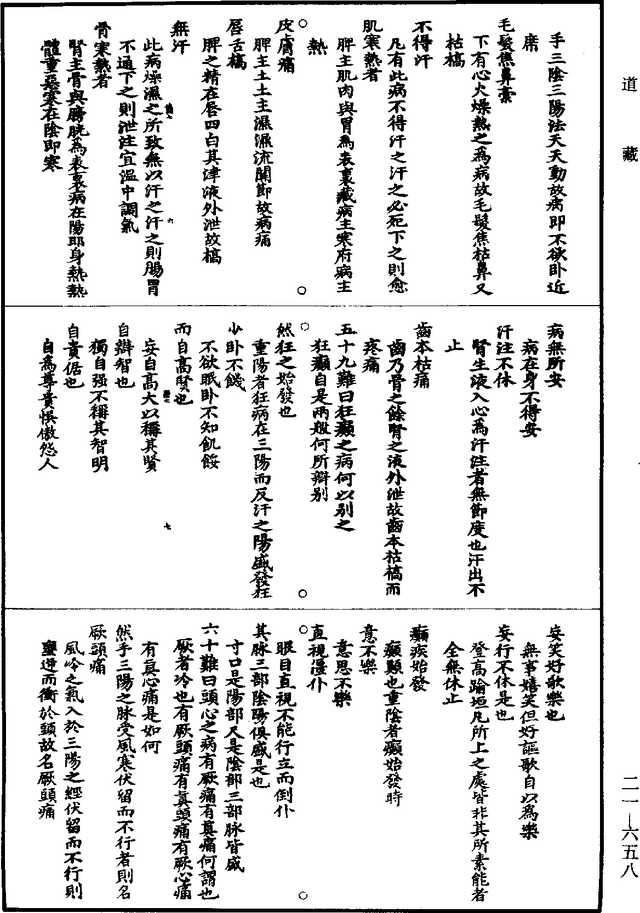 道藏
手三陰三陽法天天動故病即不欲卧近
席
毛髮焦鼻槀
下有心火燥熱之為病故毛髮焦枯鼻又
枯槁
不得汗
凡有此病不得汗之汗之必死下之則愈
肌寒熱者
脾主肌肉與胃為表裏藏病主寒府病主
熱
皮膚痛
脾主土土主濕濕流關節故病痛
唇舌槁
脾之精在唇四白其津液外泄故槁
無汗
此病燥濕之所致無以汗之汗之則腸胃
不通下之則泄注宜溫中調氣
骨寒熱者
腎主骨與膀胱為表裏病在陽即身熱熱
體重惡寒在陰即寒
六
病無所安
病在身不得安
汗注不休
腎生液入心為汗注者無節度也汗出不
止
齒本枯痛
齒乃骨之餘腎之液外泄故齒本枯槁而
疼痛
五十九難曰狂癲之病何以别之
狂癲自是兩般何所辯别
然狂之始發也
重陽者狂病在三陽而反汗之陽盛發狂
少卧不饑
不欲眠卧不知飢餒
而自高賢也
妄自高大以稱其賢
自辯智也
獨自强不稱其智明
自貴倨也
自為尊貴惧傲忽人
七
妄笑好歌樂也
無事嬉笑但好謳歌自以為樂
妄行不休是也
登高踰垣凡所上之處皆非其所素能者
全無休止
癲疾始發
癲顛也重陰者癲始發時
意不樂
意思不樂
直視僵仆
眼目直視不能行立而倒仆
其脉三部陰陽俱盛是也
寸口是陽部尺是陰部三部脉皆盛
六十難曰頭心之病有厥痛有真痛何謂也
厥者冷也有厥頭痛有真頭痛有厥心痛
有真心痛是如何
然手三陽之脉受風寒伏留而不行者則名
厥頭痛
風冷之氣入於三陽之經伏留而不行則
壅逆而衝於頭故名厥頭痛
二一—六五八